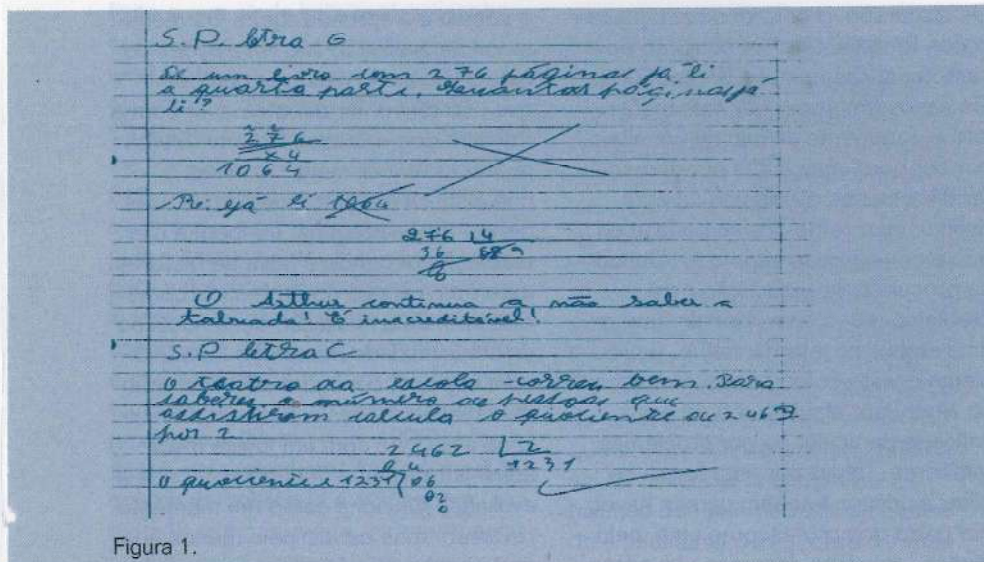 S.P. letra G
De um livro com 276 páginas já li
a quarta parte. Quantas páginas já
li?
276
x4
1064
R: já li
276 4
36
O Arthur continua a não saber a
tabuada! É inacreditável!
S.P letra C
O teatro da escola correu bem. Para
saberes o número de pessoas que
assistiram calcula o quociente de 2462
por 2
2462 2
04 1231
O quociente é 1231 06
02
0
Figura 1.